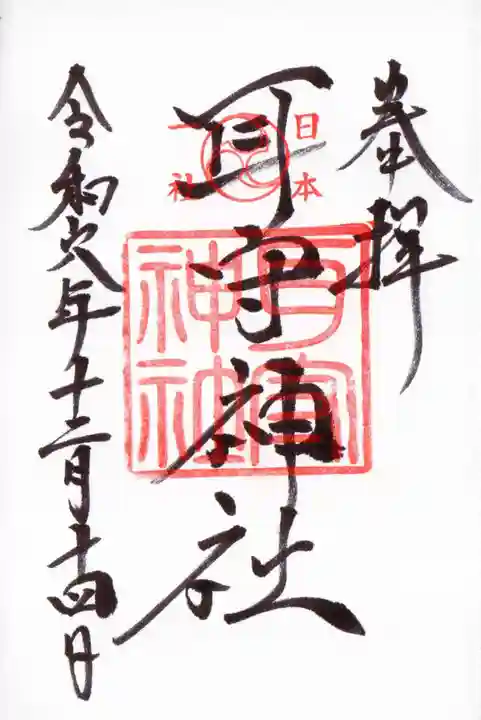 奉拝
日本一社
耳守神社
耳守神社
令和六年十二月十四日